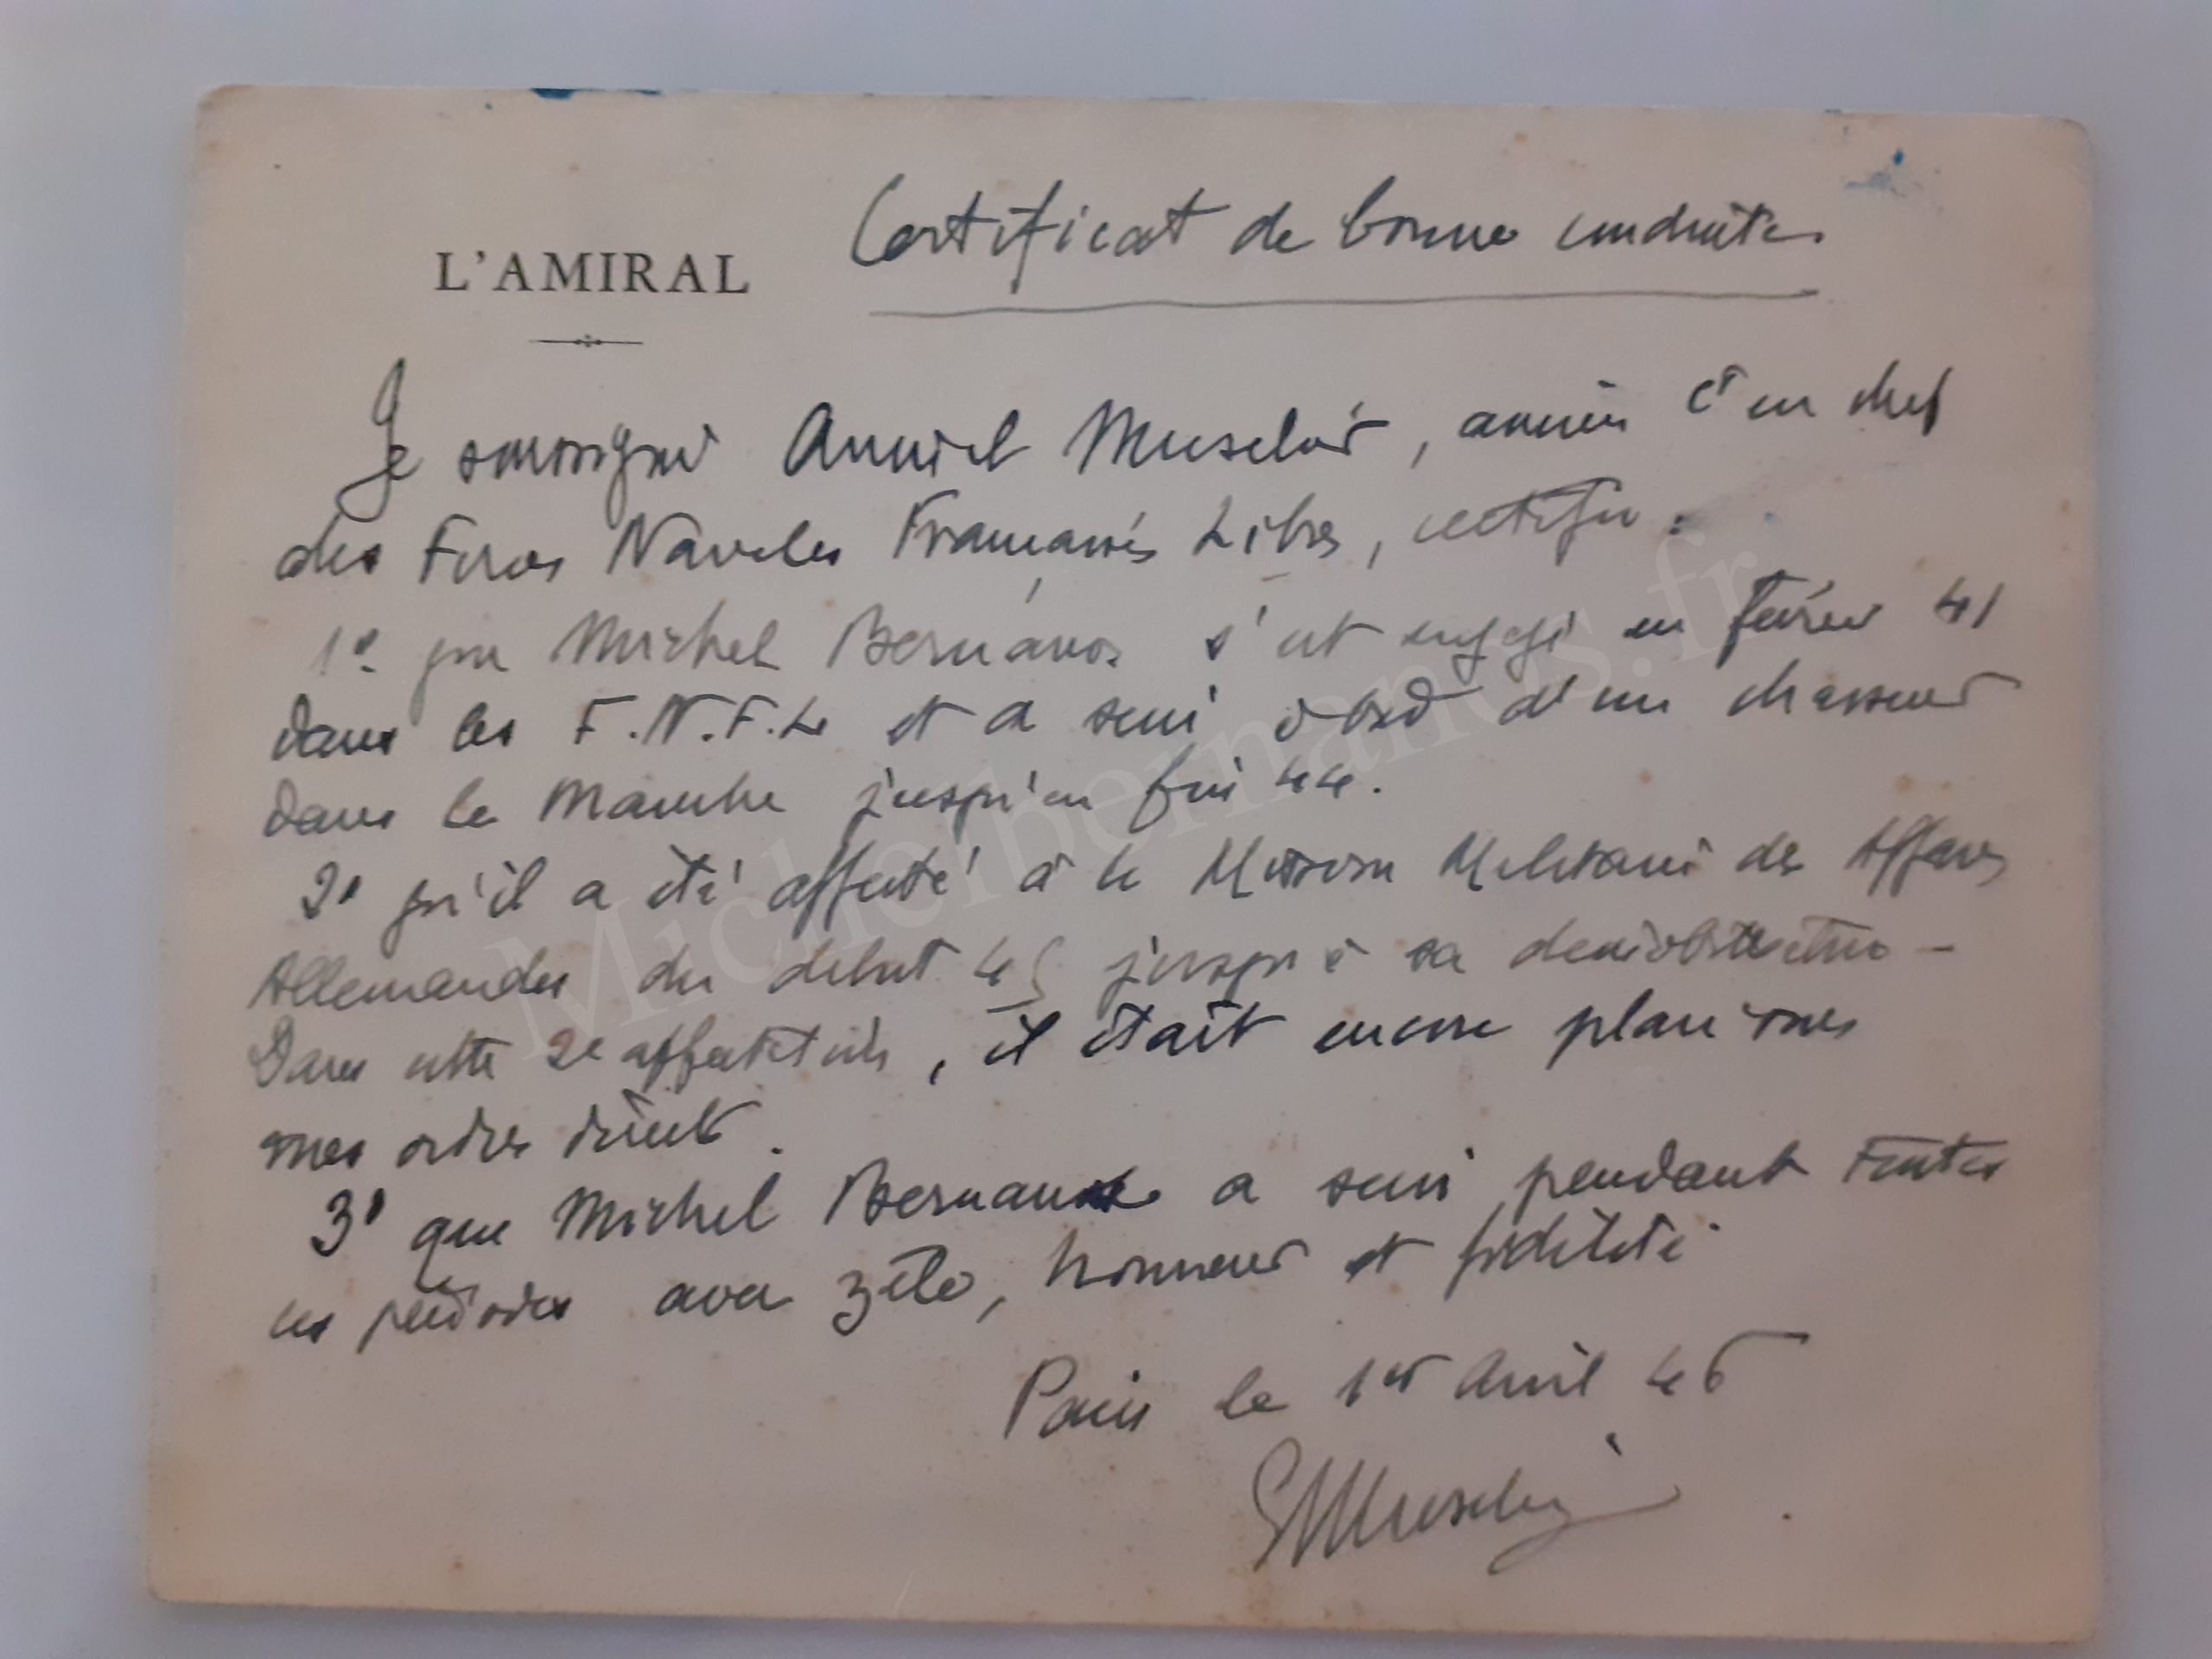 Certificat de bonne conduite
L'AMIRAL
Je soussigné Amiral Muselier, ancien Ct en chef
des Forces Navales Françaises Libres, certifie :
1º que Michel Bernanos s'est engagé en février 41
dans les F.N.F.L. et a servi à bord d'un chasseur
dans la Manche jusqu'en fin 44.
2º qu'il a été affecté à la Mission Militaire des Affaires
Allemandes du début 45 jusqu'à sa démobilisation -
Dans cette 2e affectation, il était encore placé sous
mes ordres directs.
3º que Michel Bernanos a servi pendant toutes
ces périodes avec zèle, honneur et fidélité.
Paris le 1er Avril 46
EMuselier
Michelbernanos.fr